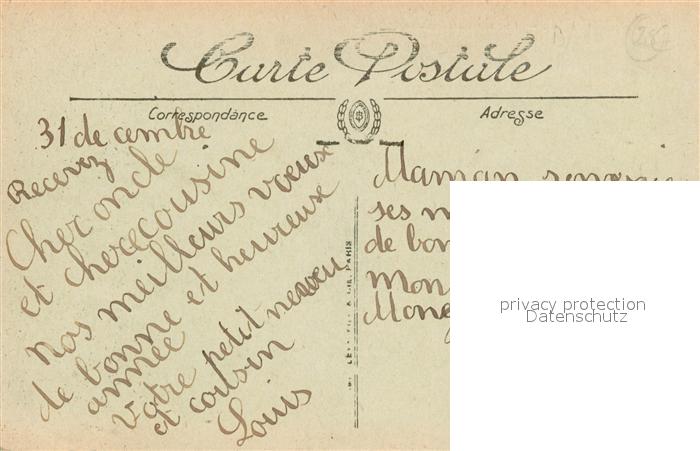 Carte Postale
Correspondance
Adresse
31 de cembre
Recevez
Cher oncle
et chere cousine
nos meilleurs voeux
de bonne et heureuse
année
votre petit neveu
et cousin
Louis
Maman
ses
de
Mon
PARIS
privacy protection
Datenschutz